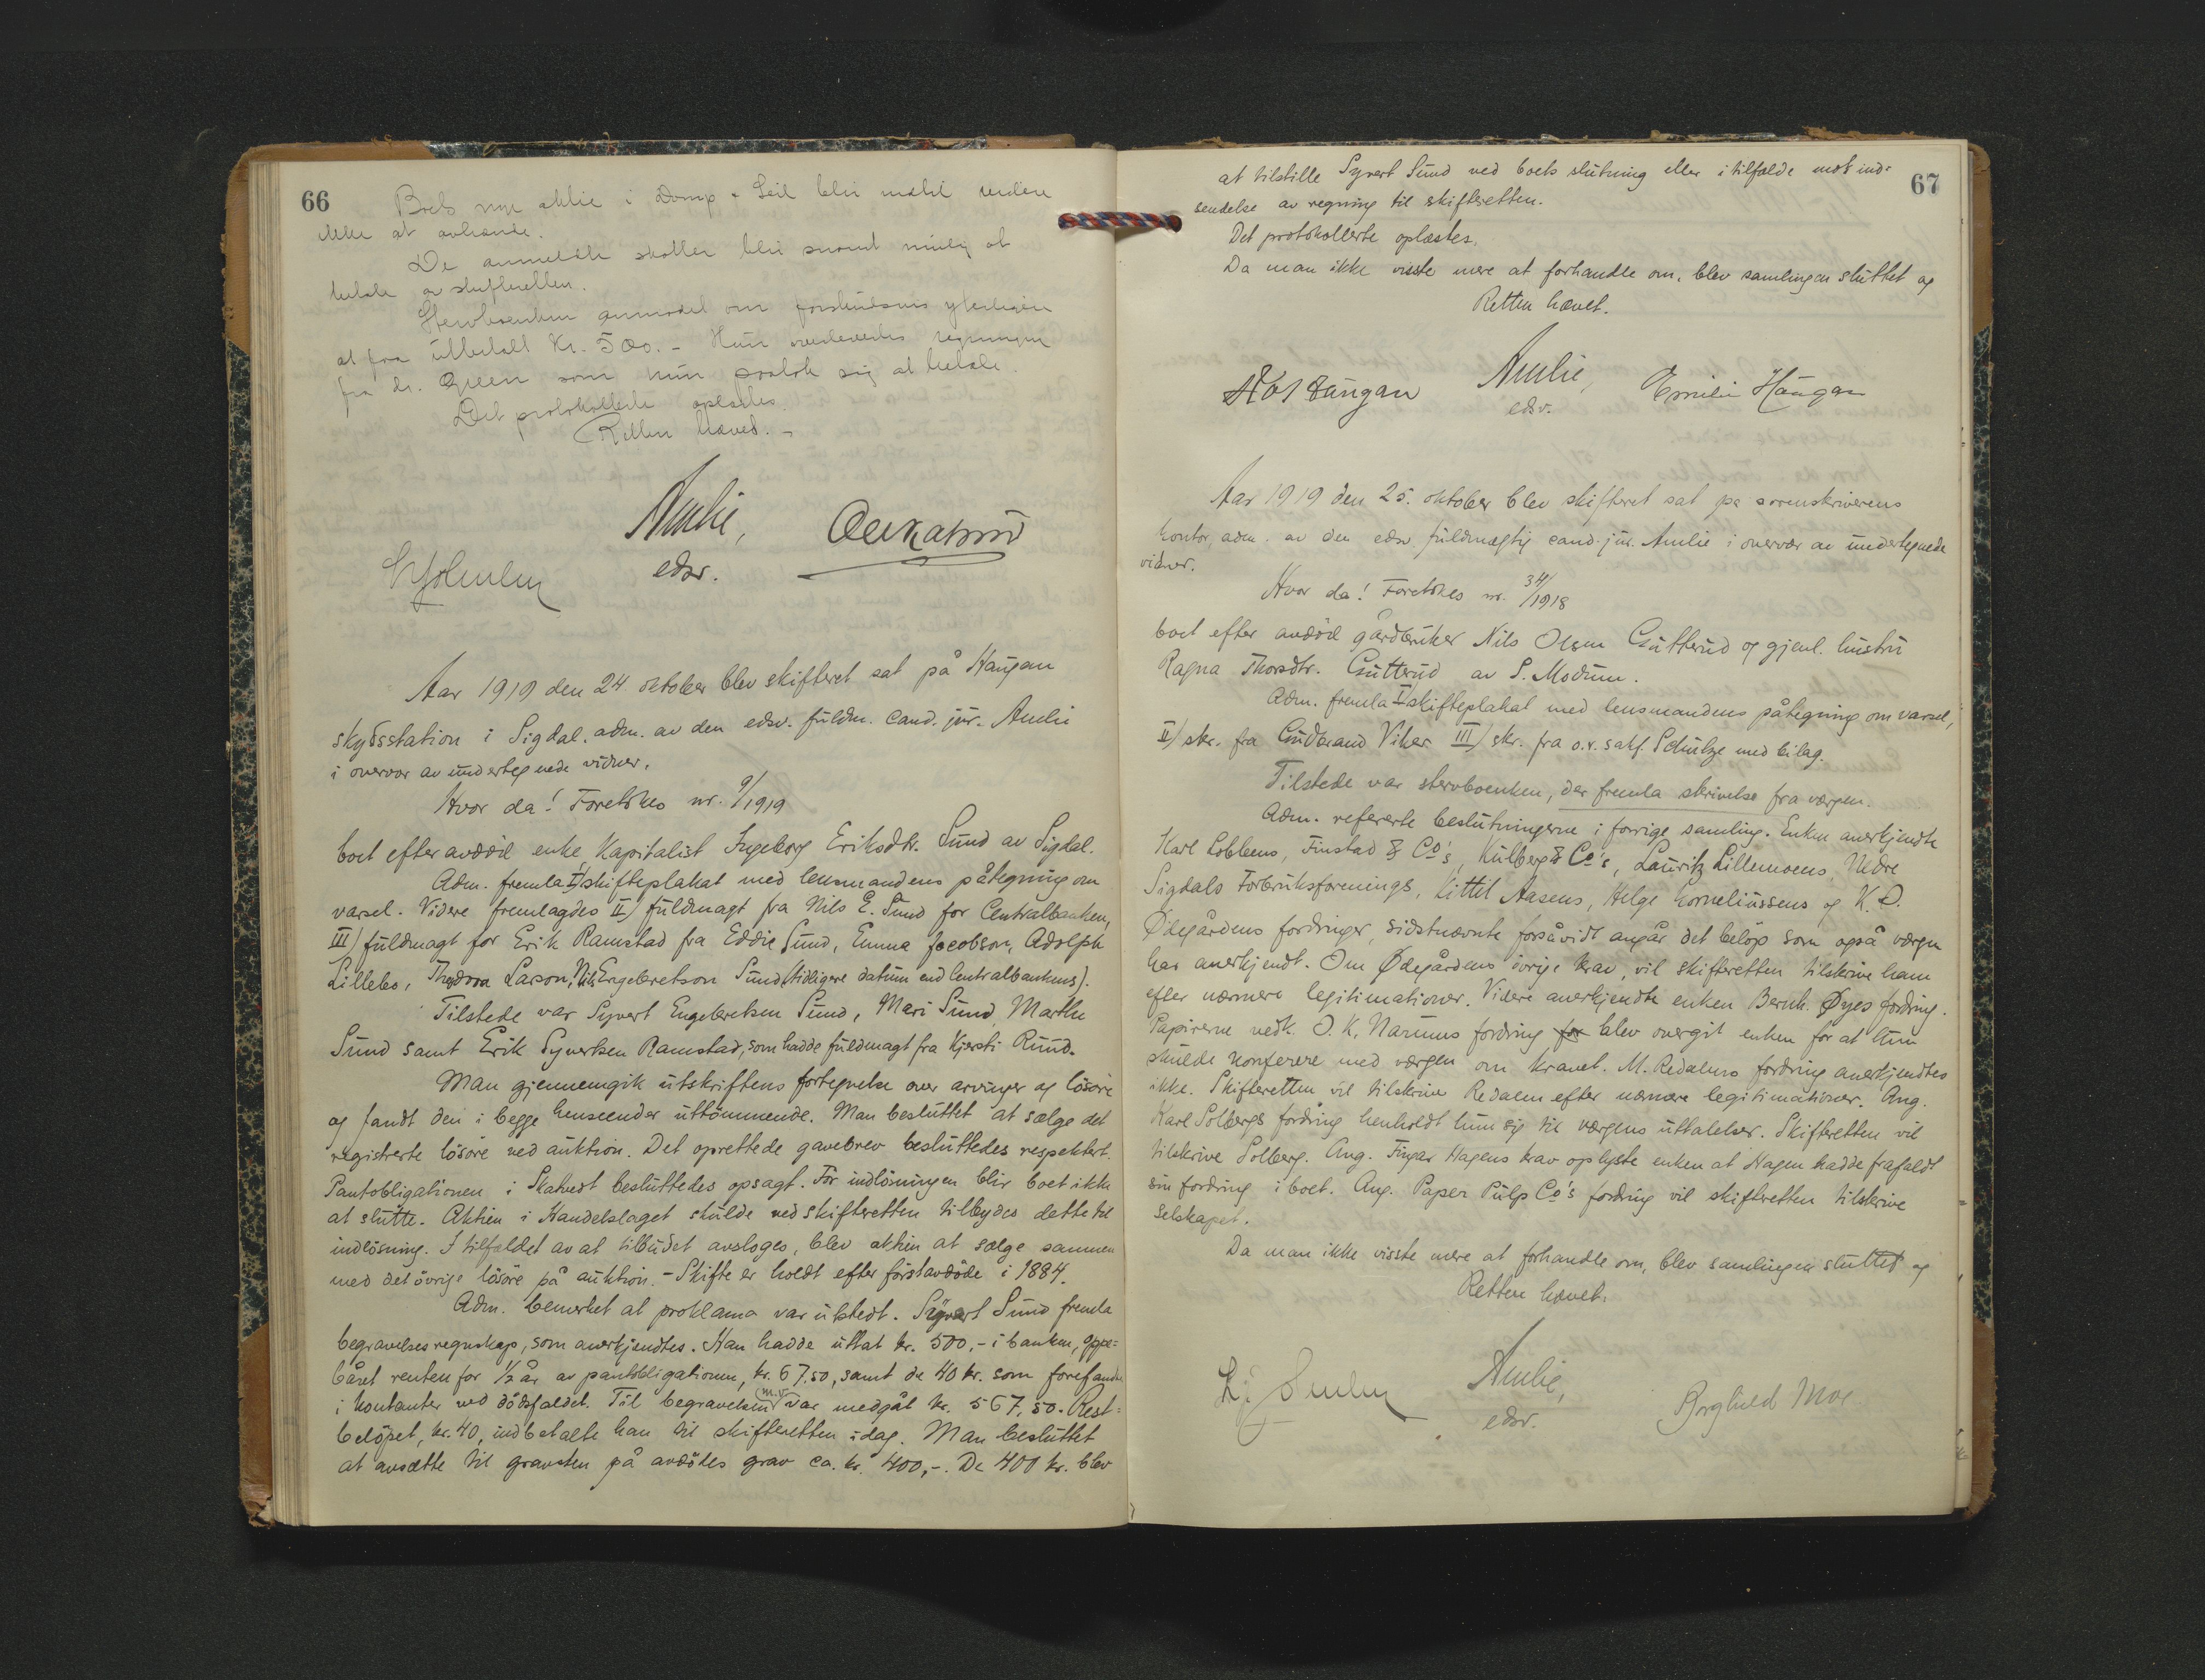 66
Boets nye aktie i Damp & Seil blir indtil videre
ikke at avhænde.
De anmeldte skatter blir snarest mulig at
betale av skifteretten.
Stervboenken anmodet om forskudsvis yderligere
at faa utbetalt Kr. 500.- Hun overleveredes regningen
fra dr. Green som hun paatok sig at betale.
Det protokollerte oplæstes.
Retten hævet.-
Amlie,
edsv.
Aar 1919 den 24 oktober blev skifteret sat på Haugan
skydsstation i Sigdal, adm. av den edsv. fuldm. cand. jur. Amlie
i overvær av undertegnede vidner.
Hvor da! Foretokes nr. 9/1919
boet efter avdöd enke, Kapitalist Ingeborg Eriksdtr. Sund av Sigdal.
Adm. fremla I) skifteplakat med lensmandens påtegning om
varsel. Videre fremlagdes II) fuldmagt fra Nils E. Sund for Centralbanken,
III) fuldmagt for Erik Ramstad fra Eddie Sund, Emma Jacobson, Adolph
Lillebo, Theodora Larson, Nils Engebretson Sund (tidligere datum end Centralbankens).
Tilstede var Syvert Engebretsen Sund, Mari Sund, Marthe
Sund samt Erik Syvertsen Ramstad, som hadde fuldmagt fra Kjersti Ruud.
Man gjennemgik utskriftens fortegnelse over arvinger og lösöre
og fandt den i begge henseender uttömmende. Man besluttet at sælge det
registrerte lösöre ved auktion. Det oprettede gavebrev besluttedes respektert.
Pantobligationen i Skatvedt besluttedes opsagt. För indlösningen blir boet ikke
at slutte. Aktien i Handelslaget skulde ved skifteretten tilbydes dette til
indlösning. I tilfældet av at tilbudet avsloges, blev aktien at sælge sammen
med det övrige lösöre på auktion. - Skifte er holdt efter förstavdöde i 1884.
Adm. bemerket at proklama var utstedt. Syvert Sund fremla
begravelsesregnskap, som anerkjendtes. Han hadde uttat kr. 500,- i banken, oppe-
båret renten for 1/2 år av pantobligationen, kr. 67.50, samt de 40 kr. som forefandtes
i kontanter ved dödsfaldet. Til begravelsen m.v. var medgåt kr. 567,50. Rest-
belöpet, kr. 40, indbetalte han til skifteretten idag. Man besluttet
at avsætte til gravsten på avdödes grav ca. kr. 400,-. De 400 kr. blev
67
at tilstille Syvert Sund ved boets slutning eller i tilfælde mot ind-
sendelse av regning til skifteretten.
Det protokollerte oplæstes.
Da man ikke visste mere at forhandle om, blev samlingen sluttet og
Retten hævet.
Haugan Amlie, Emilie Haugan
edsv.
Aar 1919 den 25. oktober blev skifteret sat på sorenskriverens
kontor, adm. av den edsv. fuldmægtig cand. jur. Amlie i overvær av undertegnede
vidner.
Hvor da! Foretokes nr. 34/1918
boet efter avdöd gårdbruker Nils Olsen Gutterud og gjenl. hustru
Ragna Thorsdtr. Gutterud av S. Modum.
Adm. fremla I) skifteplakat med lensmandens påtegning om varsel,
II) skr. fra Gudbrand Viker III) skr. fra o.r. sakf. Schulze med bilag.
Tilstede var stervboenken, der fremla skrivelse fra værgen.
Adm. refererte beslutningerne i forrige samling. Enken anerkjendte
Karl Lobbens, Finstad & Co's, Kulberg & Co's, Lauritz Lillemoens, Nedre
Sigdals Forbruksforenings, Kittil Aasens, Helge Korneliussens og K. O.
Ødegårdens fordringer, sidstnævnte forsåvidt angår det belöp som også værgen
har anerkjendt. Om Ødegårdens övrige krav, vil skifteretten tilskrive ham
efter nærmere legitimationer. Videre anerkjendte enken Bernh. Øyes fordring.
Papirerne vedk. O. K. Narums fordring for blev overgit enken for at hun
skulde konferere med værgen om kravet. M. Redalens fordring anerkjendtes
ikke. Skifteretten vil tilskrive Redalen efter nærmere legitimationer. Ang.
Karl Solbergs fordring henholdt hun sig til værgens uttalelser. Skifteretten vil
tilskrive Solberg. Ang. Fingar Hagens krav oplyste enken at Hagen hadde frafaldt
sin fordring i boet. Ang. Paper Pulp Co's fordring vil skifteretten tilskrive
selskapet.
Da man ikke visste mere at forhandle om, blev samlingen sluttet og
Retten hævet.
Amlie, Borghild Moe
edsv.